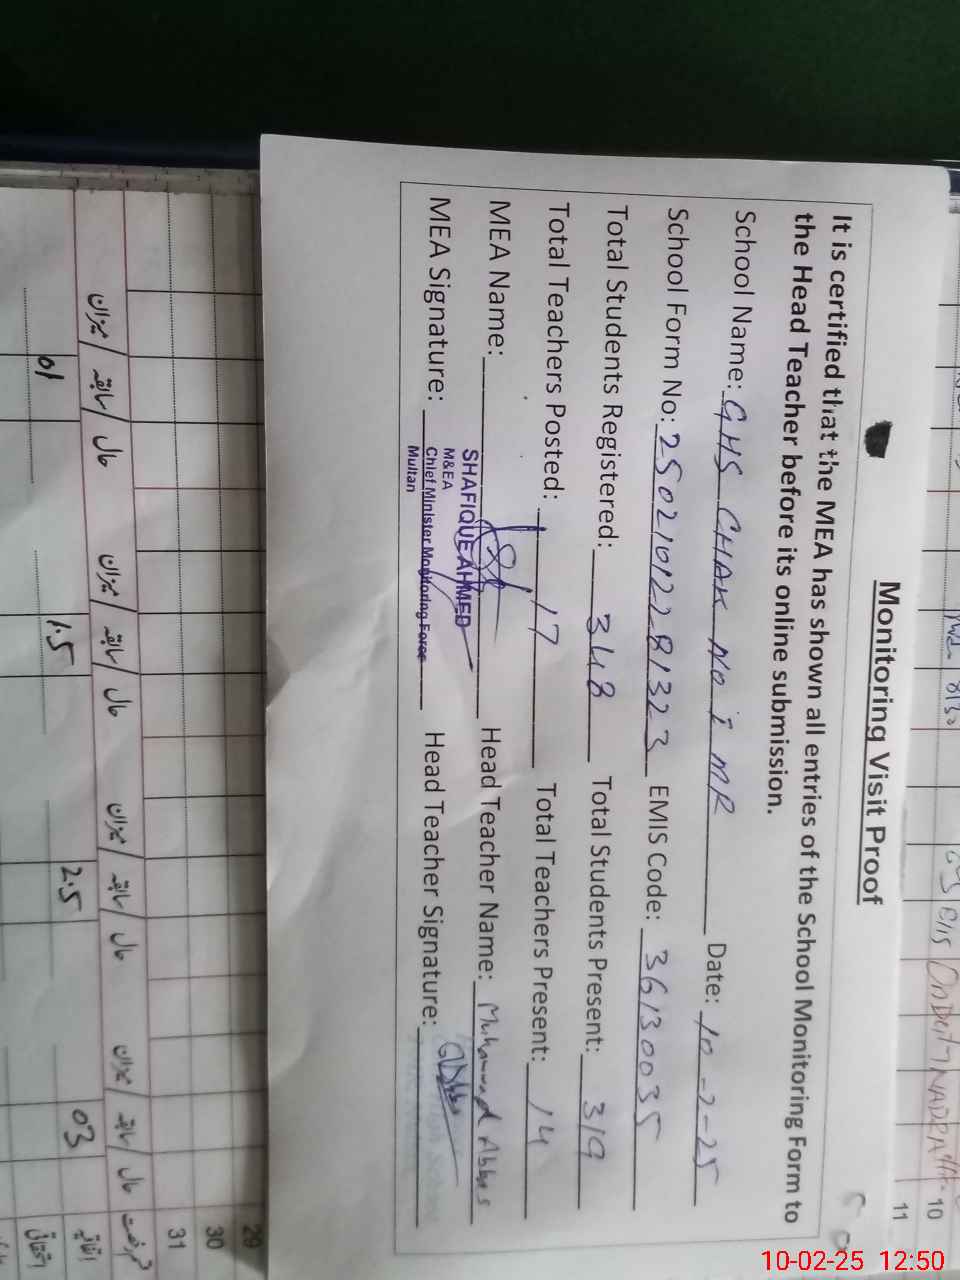 Monitoring Visit Proof
It is certified that the MEA has shown all entries of the School Monitoring Form to
the Head Teacher before its online submission.
School Name: GHS CHAK NO I MR Date: 10-2-25
School Form No: 25021012281323 EMIS Code: 36130035
Total Students Registered: 348 Total Students Present: 319
Total Teachers Posted: 17 Total Teachers Present: 14
MEA Name: Head Teacher Name: Muhammad Abbas
SHAFIQUE AHMED
M&EA
MEA Signature: Head Teacher Signature: Abbas
Chief Minister Monitoring Force
Multan
10
11
29
30
31
حال / سابقہ / میزان
حال / سابقہ / میزان
حال / سابقہ / میزان
حال / سابقہ / میزان
اتفاقیہ
استحقاقی
01
1.5
2.5
03
10-02-25 12:50